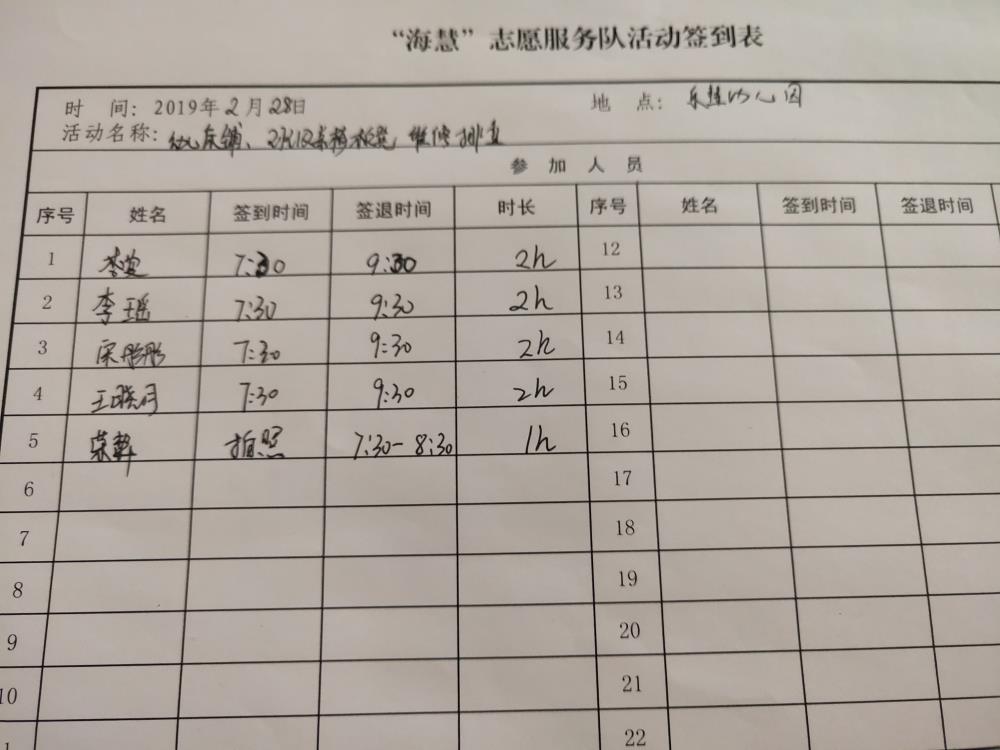 “海慧”志愿服务队活动签到表
时 间：2019年2月28日 地 点：
活动名称： 床铺、 维修排查
参 加 人 员
序号 姓名 签到时间 签退时间 时长 序号 姓名 签到时间 签退时间
1 7:30 9:30 2h 12
2 李瑶 7:30 9:30 2h 13
3 宋彤彤 7:30 9:30 2h 14
4 王晓月 7:30 9:30 2h 15
5 拍照 7:30-8:30 1h 16
6 17
7 18
8 19
9 20
10 21
22